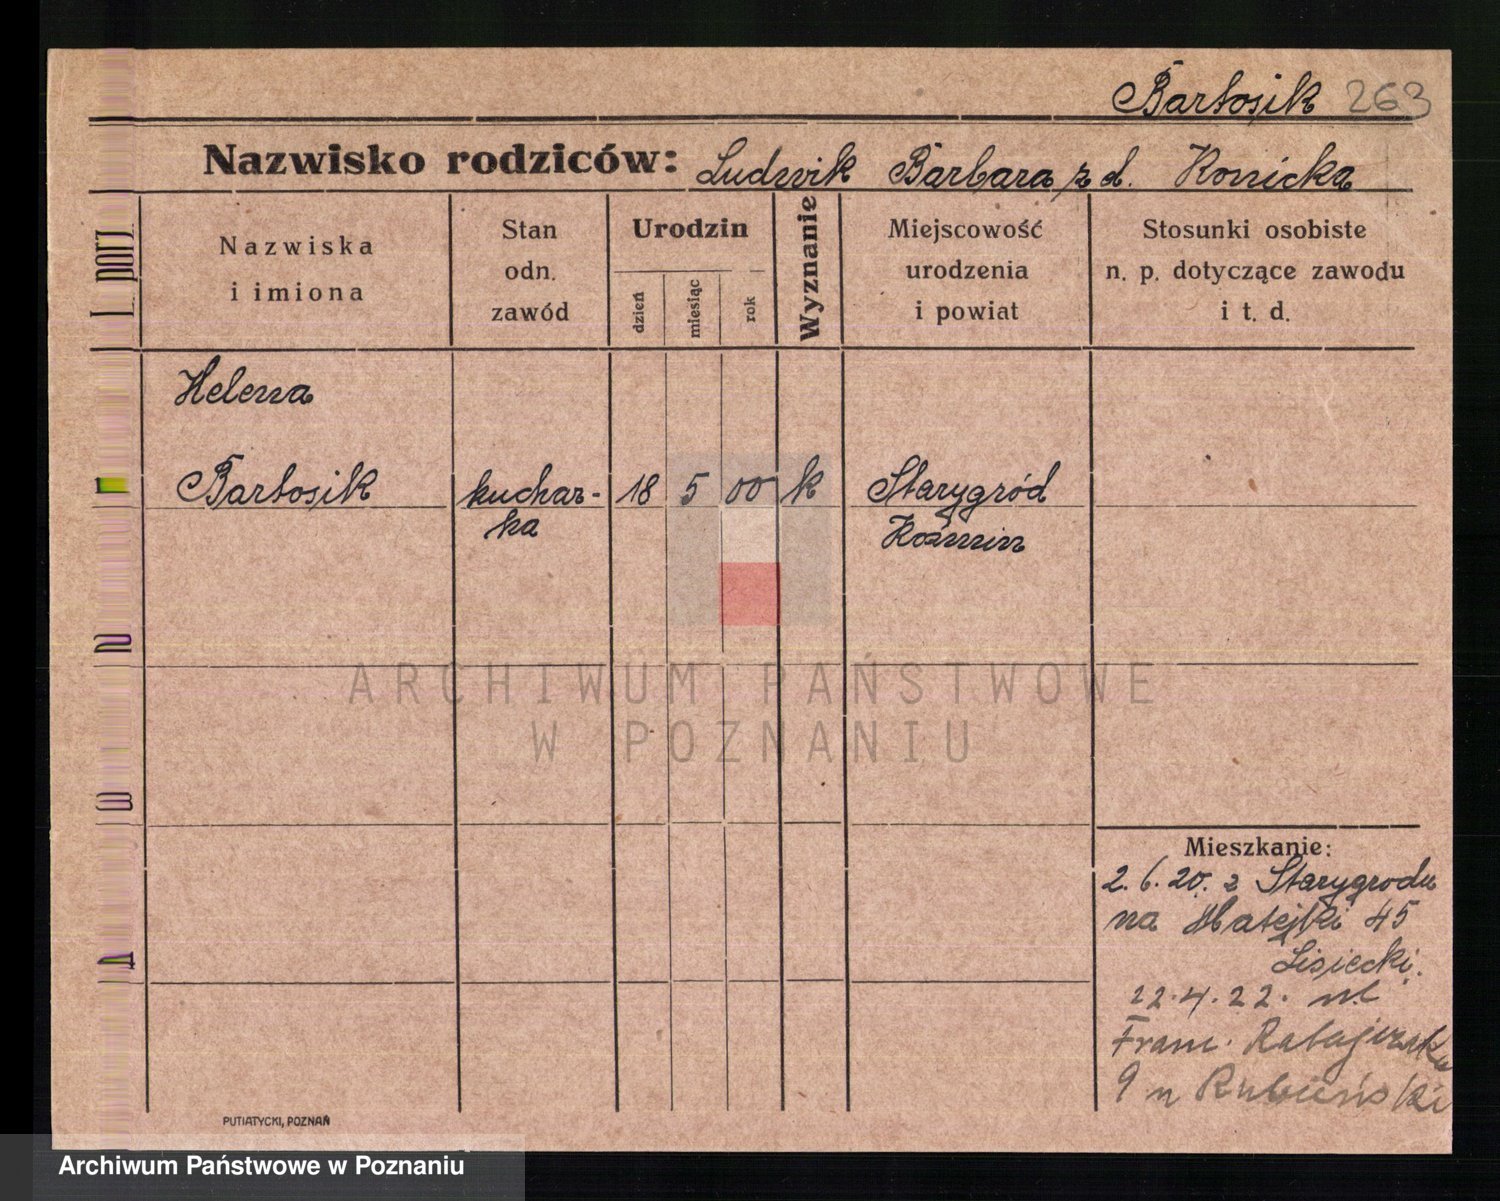 Bartosik 263
Nazwisko rodziców: Ludwik Barbara z d. Konicka
L. porz.
Nazwiska
i imiona
Stan
odn.
zawód
Urodzin
dzień
miesiąc
rok
Wyznanie
Miejscowość
urodzenia
i powiat
Stosunki osobiste
n. p. dotyczące zawodu
i t. d.
Helena
1 Bartosik kuchar- 18 5 00 k Starygród
ka Koźmin
2
ARCHIWUM PAŃSTWOWE
W POZNANIU
3
Mieszkanie:
2.6.20. z Starygrodu
na Matejki 45
4 Lisiecki.
22.4.22. ul.
Franc. Ratajczaka
9 u
PUTIATYCKI, POZNAŃ
Archiwum Państwowe w Poznaniu